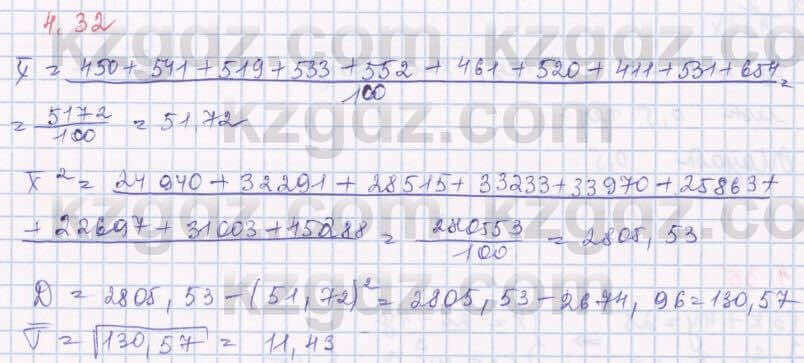 4.32
X̄ = 450 + 541 + 519 + 533 + 552 + 461 + 520 + 411 + 531 + 654 =
100
= 5172/100 = 51,72
X̄² = 24 940 + 32291 + 28515 + 33233 + 33970 + 25863 +
+ 22697 + 31003 + 45288 = 280553/100 = 2805,53
D = 2805,53 - (51,72)² = 2805,53 - 2674,96 = 130,57
σ̄ = √130,57 = 11,43
kzgdz.com
kzgdz.com
kzgdz.com
kzgdz.com
kzgdz.com
kzgdz.com